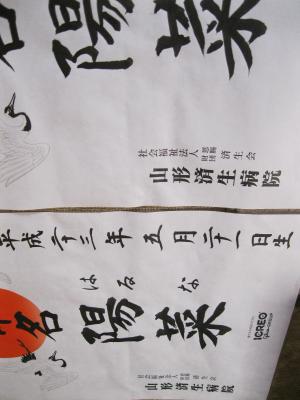 名陽菜
社会福祉法人恩賜財団済生会
山形済生病院
平成二十三年五月二十一日生
はるな
名陽菜
ICREO
社会福祉法人恩賜財団済生会
山形済生病院